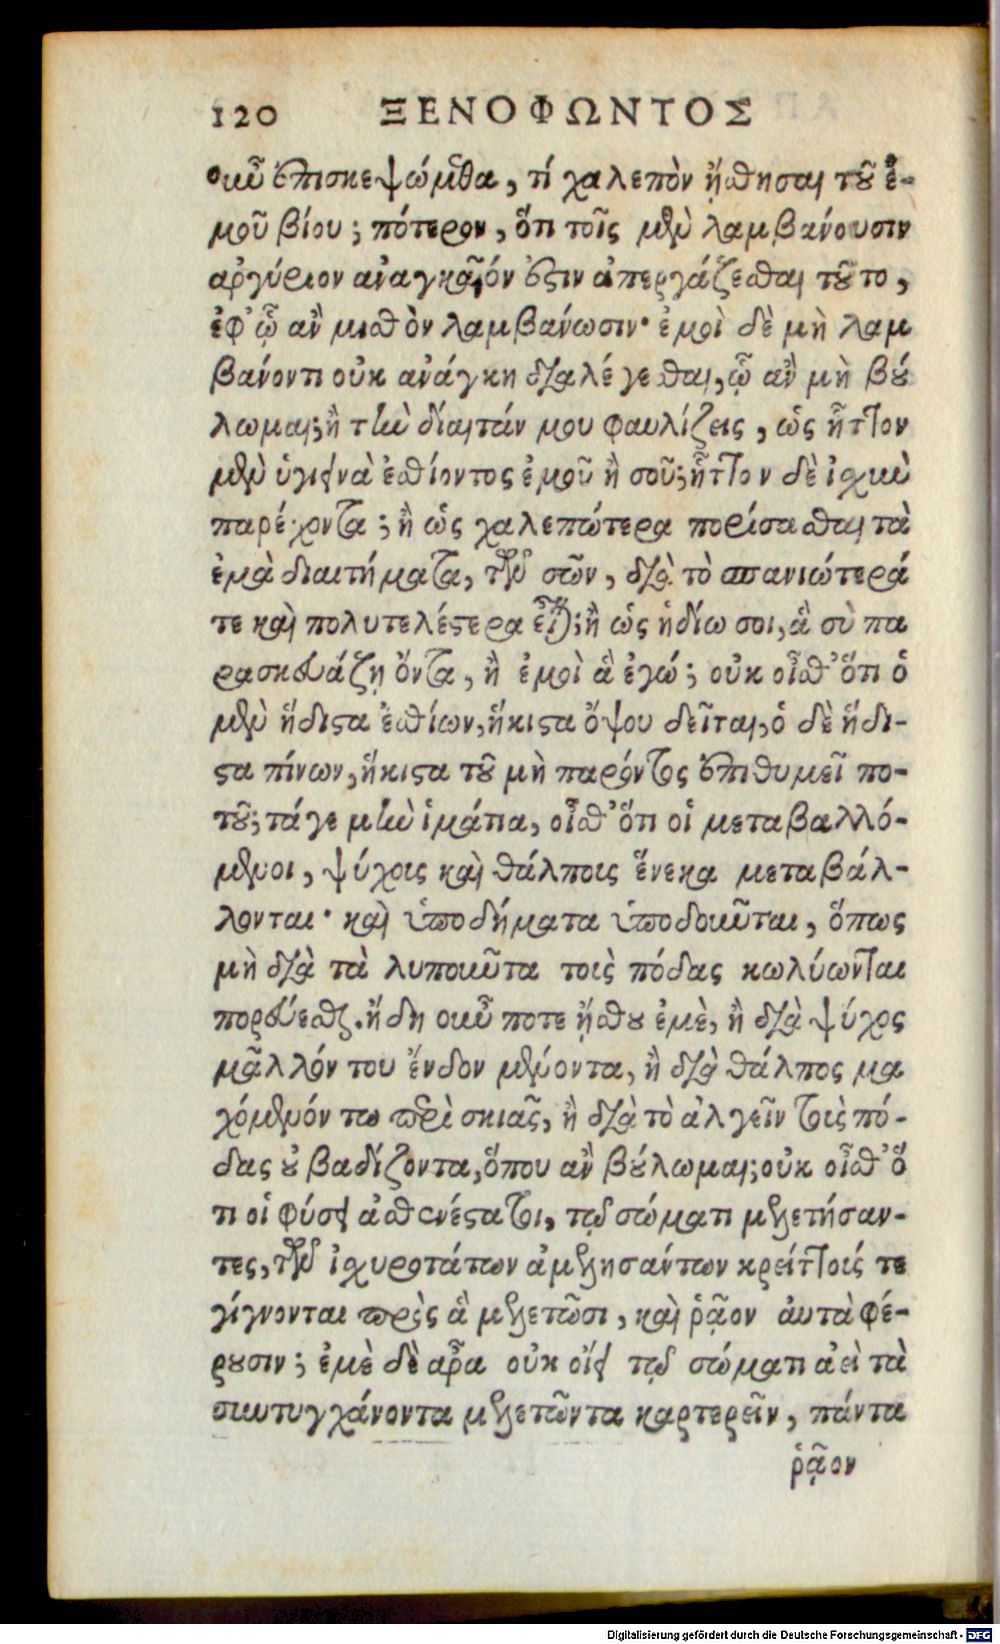 120 ΞΕΝΟΦΩΝΤΟΣ
οὖν ἐπισκεψώμεθα, τί χαλεπὸν ᾔσθησαι τοῦ ἐ-
μοῦ βίου; πότερον, ὅτι τοῖς μὲν λαμβάνουσιν
ἀργύριον ἀναγκαῖόν ἐστιν ἀπεργάζεσθαι τοῦτο,
ἐφ' ᾧ ἂν μισθὸν λαμβάνωσιν· ἐμοὶ δὲ μὴ λαμ
βάνοντι οὐκ ἀνάγκη διαλέγεσθαι, ᾧ ἂν μὴ βού
λωμαι; ἢ τὴν δίαιτάν μου φαυλίζεις, ὡς ἧττον
μὲν ὑγιεινὰ ἐσθίοντος ἐμοῦ ἢ σοῦ; ἧττον δὲ ἰσχὺν
παρέχοντα; ἢ ὡς χαλεπώτερα πορίσασθαι τὰ
ἐμὰ διαιτήματα, τῶν σῶν, διὰ τὸ σπανιώτερά
τε καὶ πολυτελέστερα εἶναι; ἢ ὡς ἡδίω σοι, ἃ σὺ πα
ρασκευάζῃ ὄντα, ἢ ἐμοὶ ἃ ἐγώ; οὐκ οἶσθ' ὅτι ὁ
μὲν ἥδιστα ἐσθίων, ἥκιστα ὄψου δεῖται, ὁ δὲ ἥδι-
στα πίνων, ἥκιστα τοῦ μὴ παρόντος ἐπιθυμεῖ πο-
τοῦ; τά γε μὴν ἱμάτια, οἶσθ' ὅτι οἱ μεταβαλλό-
μενοι, ψύχοις καὶ θάλποις ἕνεκα μεταβάλ-
λονται· καὶ ὑποδήματα ὑποδοῦνται, ὅπως
μὴ διὰ τὰ λυποῦντα τοὺς πόδας κωλύωνται
πορεύεσθαι. ἤδη οὖν ποτε ᾔσθου ἐμὲ, ἢ διὰ ψύχος
μᾶλλόν του ἔνδον μένοντα, ἢ διὰ θάλπος μα
χόμενόν τῳ περὶ σκιᾶς, ἢ διὰ τὸ ἀλγεῖν τοὺς πό-
δας οὐ βαδίζοντα, ὅπου ἂν βούλωμαι; οὐκ οἶσθ' ὅ
τι οἱ φύσει ἀσθενέστατοι, τῷ σώματι μελετήσαν-
τες, τῶν ἰσχυροτάτων ἀμελησάντων κρείττοίς τε
γίγνονται πρὸς ἃ μελετῶσι, καὶ ῥᾷον αὐτὰ φέ-
ρουσιν; ἐμὲ δὲ ἆρα οὐκ οἴει τῷ σώματι ἀεὶ τὰ
συντυγχάνοντα μελετῶντα καρτερεῖν, πάντα
ῥᾷον
Digitalisierung gefördert durch die Deutsche Forschungsgemeinschaft - DFG